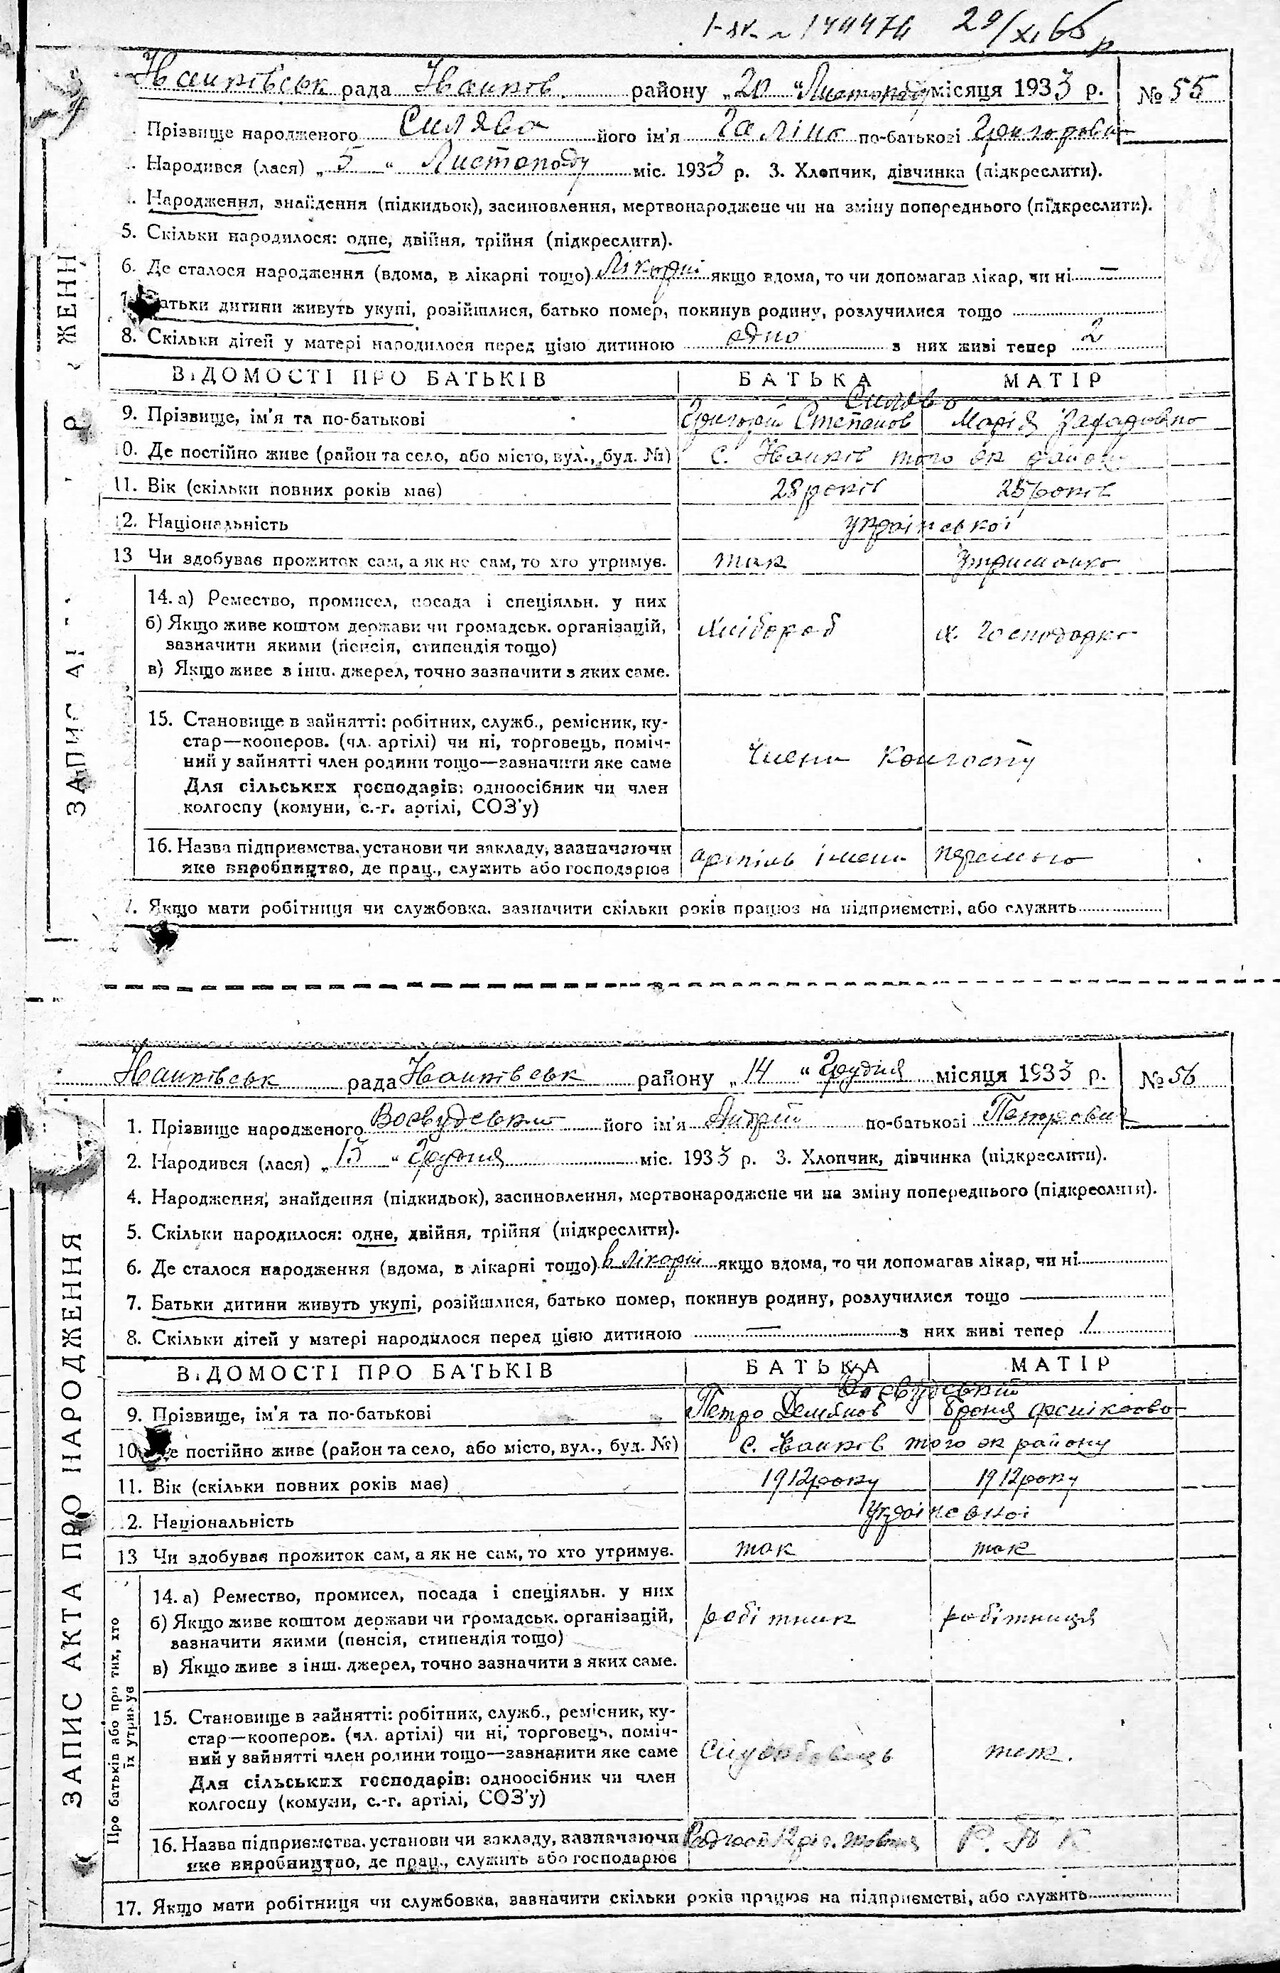 29/XI 65 р
рада району „20 “ Листопаду місяця 1933 р. № 55
Прізвище народженого його ім'я Галіна по-батькові
Народився (лася) „ 5 “ Листопаду міс. 1933 р. 3. Хлопчик, дівчинка (підкреслити).
Народження, знайдення (підкидьок), засиновлення, мертвонароджене чи на зміну попереднього (підкреслити).
5. Скільки народилося: одне, двійня, трійня (підкреслити).
6. Де сталося народження (вдома, в лікарні тощо) якщо вдома, то чи допомагав лікар, чи ні —
Батьки дитини живуть укупі, розійшлися, батько помер, покинув родину, розлучилися тощо
8. Скільки дітей у матері народилося перед цією дитиною одно з них живі тепер 2
ВІДОМОСТІ ПРО БАТЬКІВ БАТЬКА МАТІР
9. Прізвище, ім'я та по-батькові Григорій Степанов Марія
10. Де постійно живе (район та село, або місто, вул., буд. №) с. того ж району
11. Вік (скільки повних років має) 28 років 25 років
12. Національність української
13 Чи здобуває прожиток сам, а як не сам, то хто утримує. так
14. а) Ремество, промисел, посада і спеціяльн. у них
б) Якщо живе коштом держави чи громадськ. організацій, хлібороб х. господарка
зазначити якими (пенсія, стипендія тощо)
в) Якщо живе з інш. джерел, точно зазначити з яких саме.
15. Становище в зайнятті: робітник, служб., ремісник, ку-
стар—кооперов. (чл. артілі) чи ні, торговець, поміч-
ний у зайнятті член родини тощо—зазначити яке саме члени колгоспу
Для сільських господарів: одноосібник чи член
колгоспу (комуни, с.-г. артілі, СОЗ'у)
16. Назва підприємства, установи чи закладу, зазначаючи артіль імени
яке виробництво, де прац., служить або господарює
7. Якщо мати робітниця чи службовка, зазначити скільки років працює на підприємстві, або служить
ЗАПИС АК
рада району „ 14 “ Грудня місяця 1933 р. № 56
1. Прізвище народженого його ім'я Андрій по-батькові Петрович
2. Народився (лася) „ 13 “ Грудня міс. 1933 р. 3. Хлопчик, дівчинка (підкреслити).
4. Народження, знайдення (підкидьок), засиновлення, мертвонароджене чи на зміну попереднього (підкреслити).
5. Скільки народилося: одне, двійня, трійня (підкреслити).
6. Де сталося народження (вдома, в лікарні тощо) в лікарні якщо вдома, то чи допомагав лікар, чи ні
7. Батьки дитини живуть укупі, розійшлися, батько помер, покинув родину, розлучилися тощо
8. Скільки дітей у матері народилося перед цією дитиною — з них живі тепер 1
ВІДОМОСТІ ПРО БАТЬКІВ БАТЬКА МАТІР
9. Прізвище, ім'я та по-батькові Петро Демянов Броня
10. Де постійно живе (район та село, або місто, вул., буд. №) с. того ж району
11. Вік (скільки повних років має) 1912 року 1912 року
12. Національність
13 Чи здобуває прожиток сам, а як не сам, то хто утримує. так так
14. а) Ремество, промисел, посада і спеціяльн. у них
б) Якщо живе коштом держави чи громадськ. організацій, робітник робітниця
зазначити якими (пенсія, стипендія тощо)
в) Якщо живе з інш. джерел, точно зазначити з яких саме.
15. Становище в зайнятті: робітник, служб., ремісник, ку-
стар—кооперов. (чл. артілі) чи ні, торговець, поміч-
ний у зайнятті член родини тощо—зазначити яке саме службовець теж.
Для сільських господарів: одноосібник чи член
колгоспу (комуни, с.-г. артілі, СОЗ'у)
16. Назва підприємства, установи чи закладу, зазначаючи
яке виробництво, де прац., служить або господарює
17. Якщо мати робітниця чи службовка, зазначити скільки років працює на підприємстві, або служить
ЗАПИС АКТА ПРО НАРОДЖЕННЯ
Про батьків або про тих, хто
їх утримує